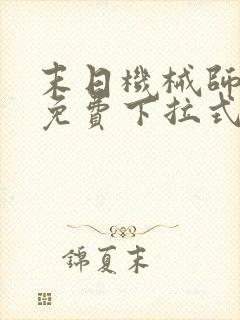 末日機械師
免費下拉式
錦夏末